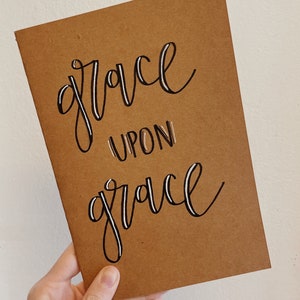 grace
UPON
grace